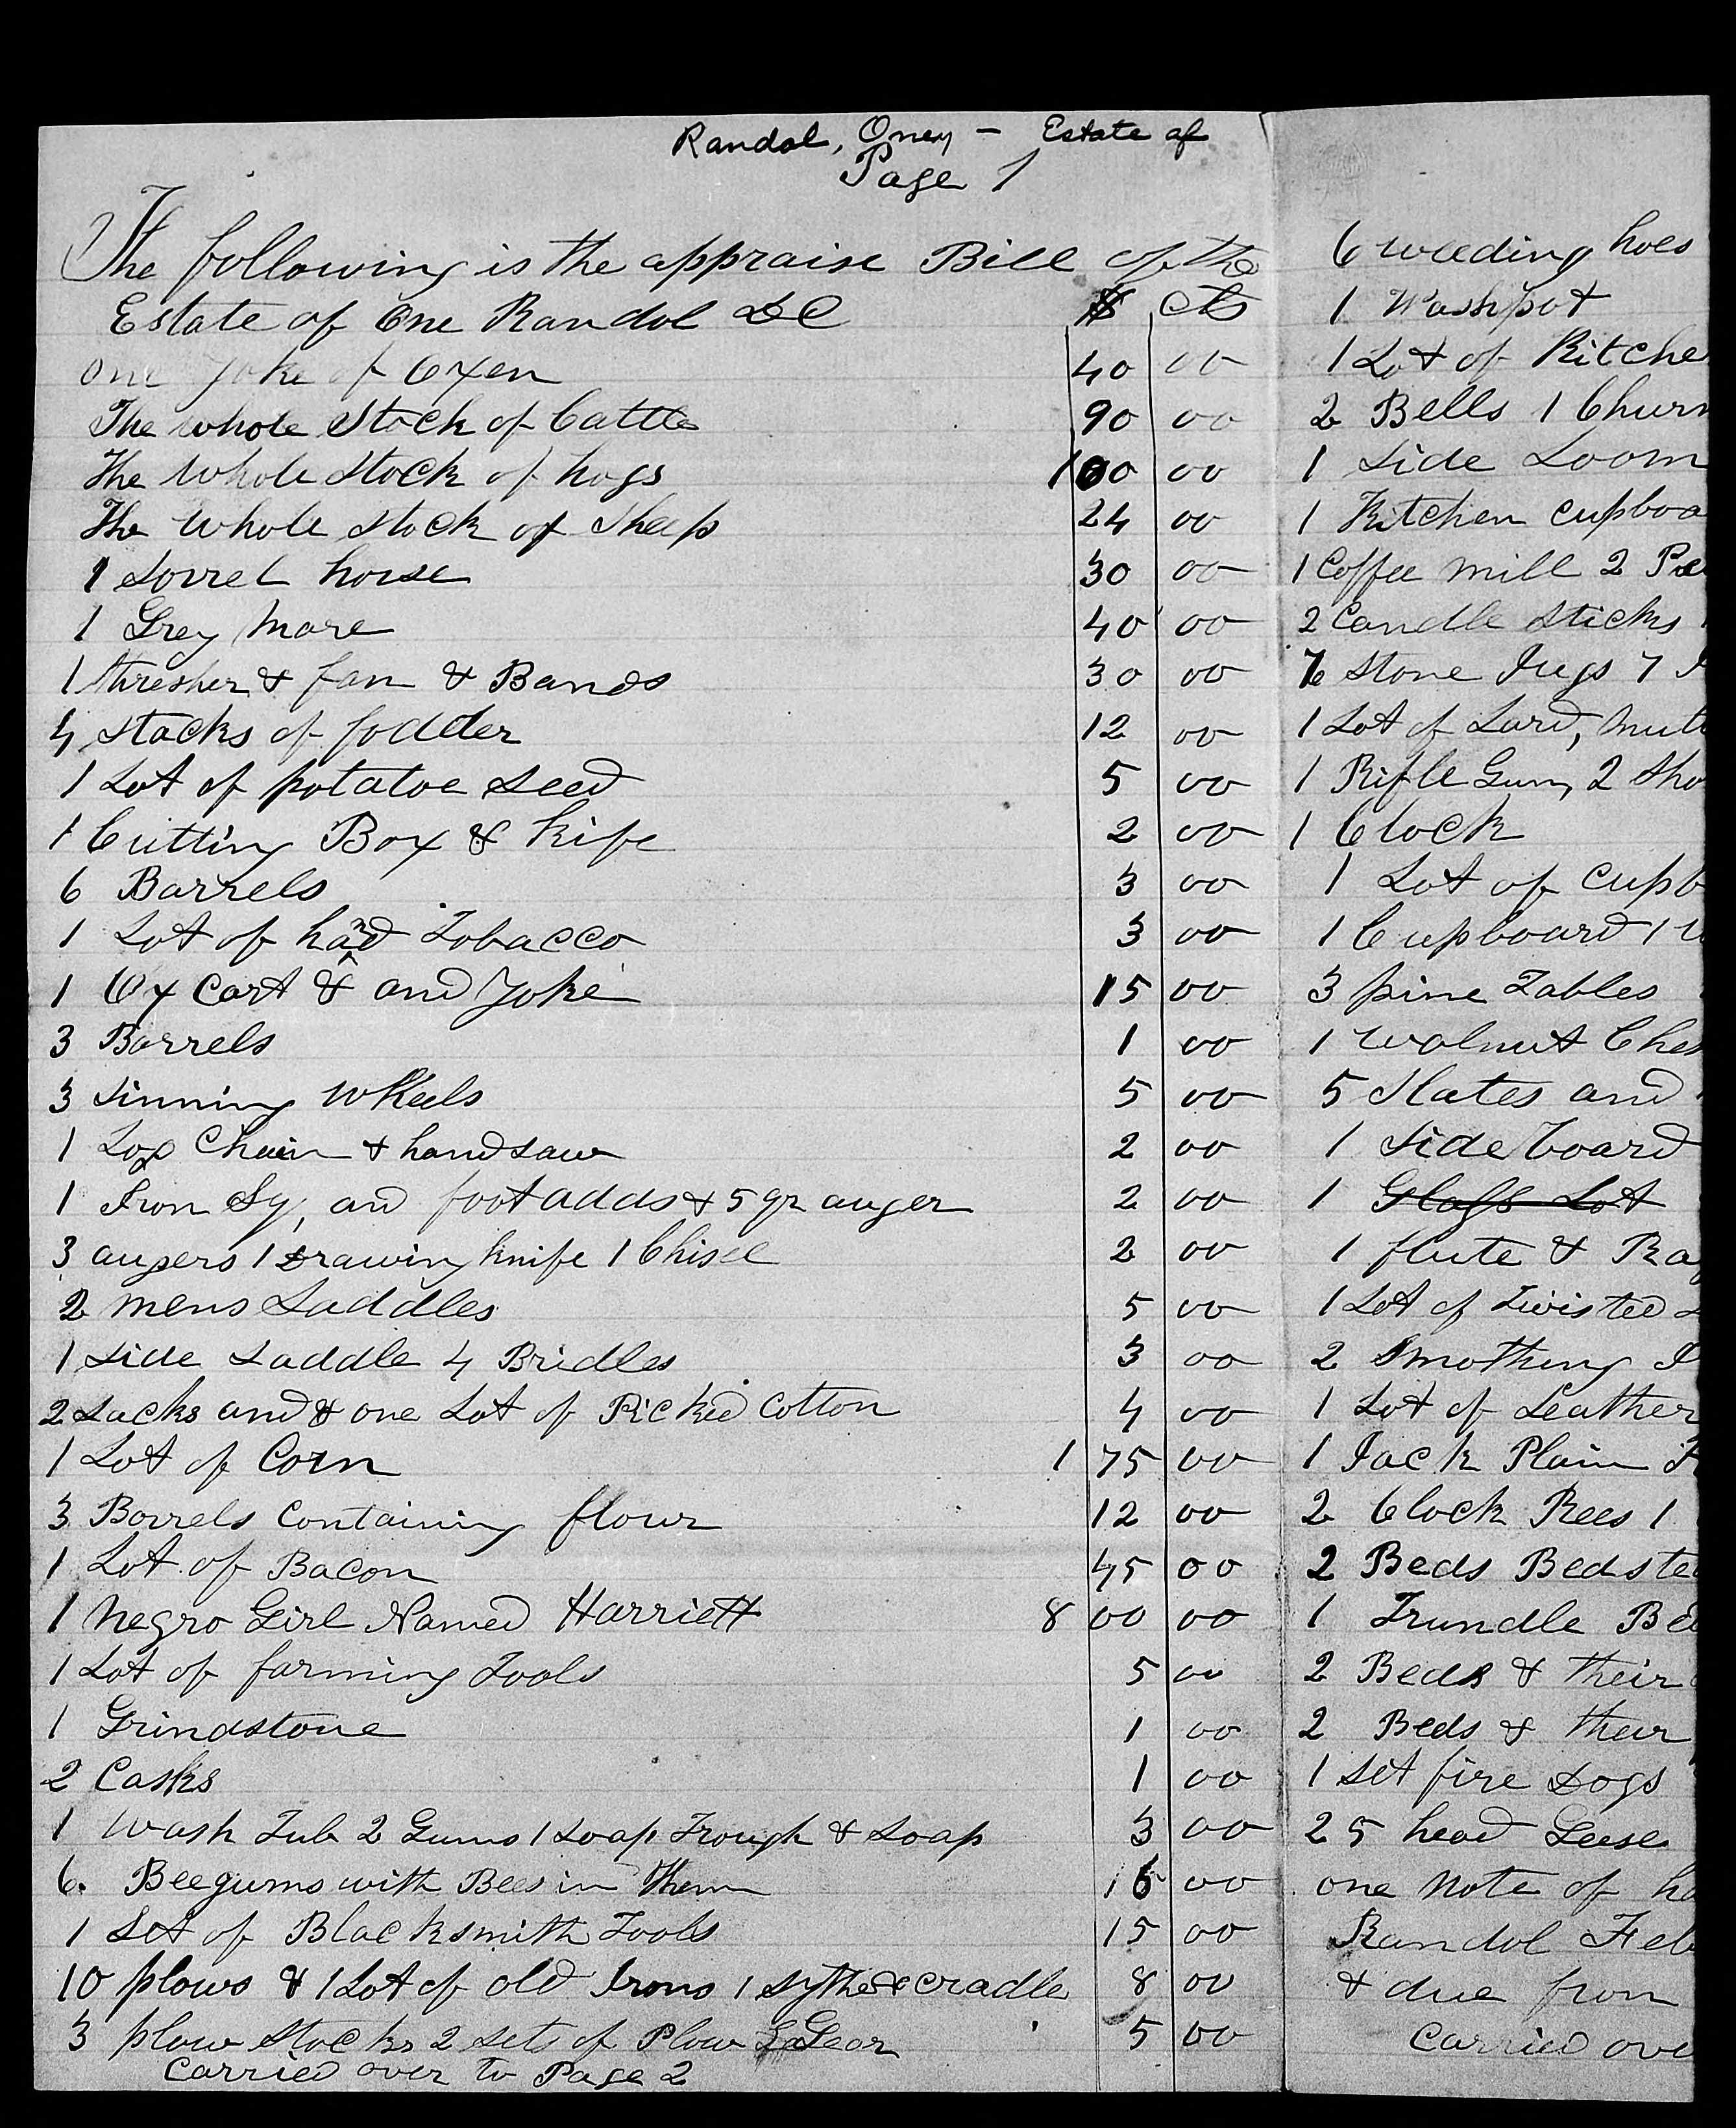 Randol, Oney - Estate of
Page 1
The following is the appraise Bill of the
Estate of One Randol DC $ cts
one yoke of Oxen 40 00
The whole Stock of Cattle 90 00
The whole stock of hogs 100 00
The whole stock of Sheep 24 00
1 Sorrel horse 30 00
1 Grey Mare 40 00
1 thresher & fan & Bands 30 00
4 stacks of fodder 12 00
1 Lot of potatoe seed 5 00
1 Cutting Box & kife 2 00
6 Barrels 3 00
1 Lot of hand Tobacco 3 00
1 Ox Cart & and Yoke 15 00
3 Barrels 1 00
3 sinning wheels 5 00
1 Log Chain & hand saw 2 00
1 Iron Sq, and foot adds & 5 qr auger 2 00
3 augers 1 Drawing knife 1 Chisel 2 00
2 mens Saddles 5 00
1 side saddle 4 Bridles 3 00
2 sacks and & one Lot of Picked Cotton 4 00
1 Lot of Corn 175 00
3 Barrels Containing flour 12 00
1 Lot of Bacon 45 00
1 Negro Girl Named Harriett 800 00
1 Lot of farming Tools 5 00
1 Grindstone 1 00
2 Casks 1 00
1 Wash Tub 2 Gums 1 Soap Trough & Soap 3 00
6. Beegums with Bees in them 16 00
1 Set of Blacksmith Tools 15 00
10 plows & 1 Lot of old Irons 1 sythe & cradle 8 00
3 plow stocks 2 sets of Plow Gear 5 00
Carried over to Page 2
6 weeding hoes
1 Washpot
1 Lot of Kitche
2 Bells 1 Churn
1 Side Loom
1 Kitchen cupboa
1 Coffee mill 2
2 Candle sticks
Stone Jugs 7
1 Lot of Lard,
1 Rifle Gun, 2 Sho
1 Clock
1 Lot of cupb
1 Cupboard 1
3 pine Tables
1 Walnut Ches
5 Slates and
1 side board
1 Glass Lot
1 flute & Ra
1 Lot of Twisted
2 Smothing I
1 Lot of Leather
1 Jack Plain
2 Clock Rees 1
2 Beds Bedste
1 Trundle Be
2 Beds & their
2 Beds & their
1 set fire Dogs
25 head Geese
one Note of ha
Randol Feb
& due from
Carried ove